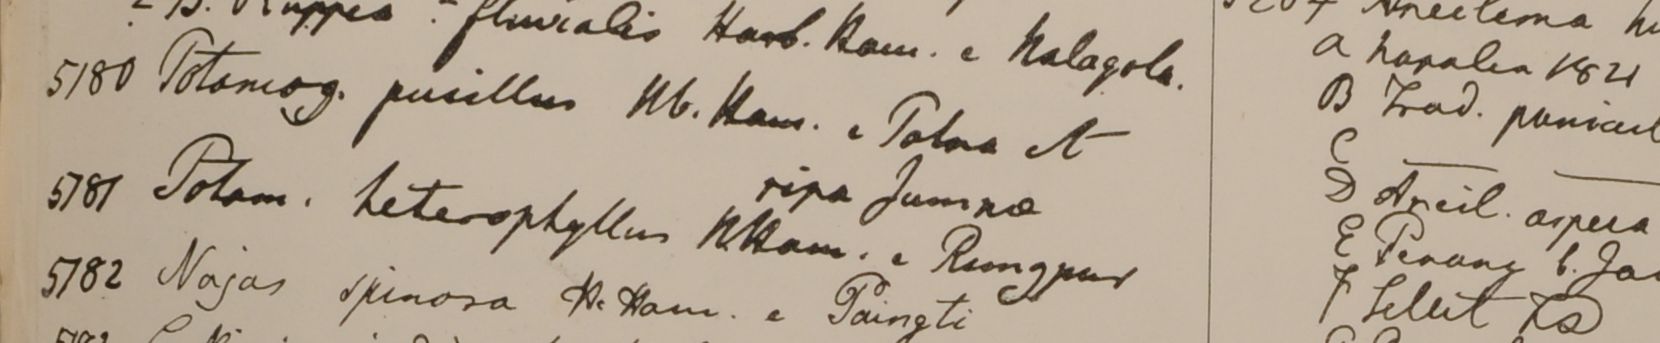 B. Ruppia fluvialis Herb. Ham. e Nalagola.
5180 Potamog. pusillus Hb. Ham. e Patna et
ripa Jumnae
5181 Potam. heterophyllus H. Ham. e Rungpur
5182 Najas spinosa H. Ham. e Paingti
Aneilema
a Napalia 1821
B Trad.
C
D Aneil. aspera
E Penang
F Sillet